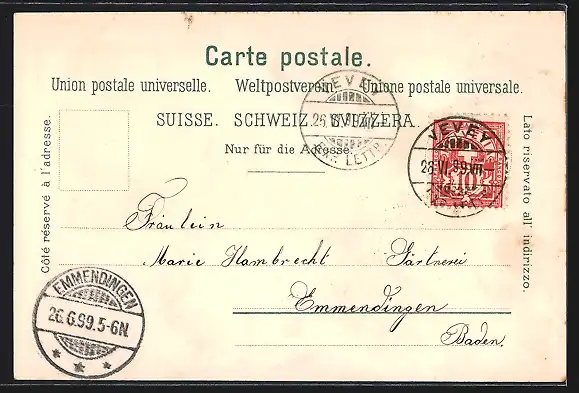 Carte postale.
Union postale universelle. Weltpostverein. Unione postale universale.
SUISSE. SCHWEIZ. SVIZZERA.
Nur für die Adresse.
Côté réservé à l'adresse.
Lato riservato all' indirizzo.
VEVEY
VEVEY
26.VI.99.VII
10
Fräulein
Marie Hambrecht Gärtnerei
Emmendingen
Baden.
EMMENDINGEN
26.6.99.5-6N.